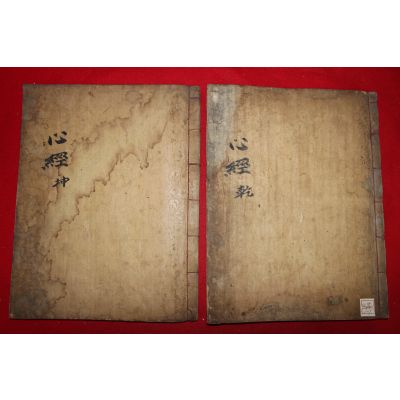 心經 乾
心經 坤